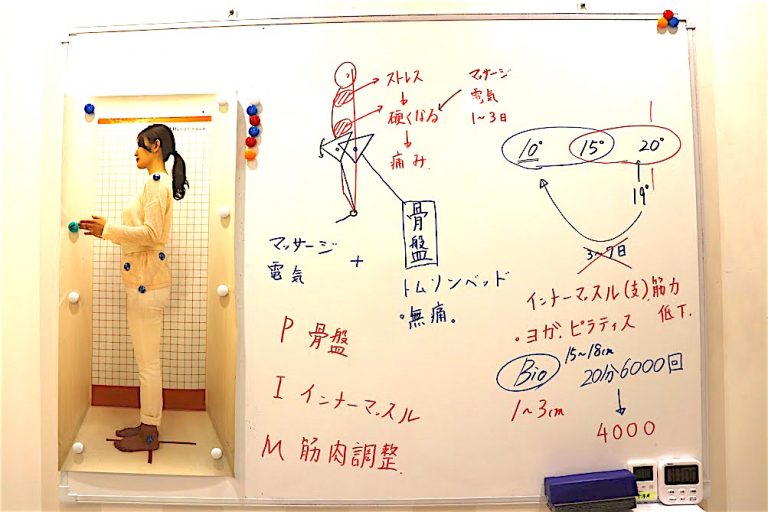 ストレス
硬くなる
痛み.
マッサージ
電気
1~3日
10°
15°
20°
19°
3~7日
マッサージ
電気
+
骨盤
トムソンベッド
・無痛。
P 骨盤
I インナーマッスル
M 筋肉調整.
インナーマッスル(支)筋力
低下.
・ヨガ.ピラティス
Bio
15~18cm
20分6000回
1~3cm
4000